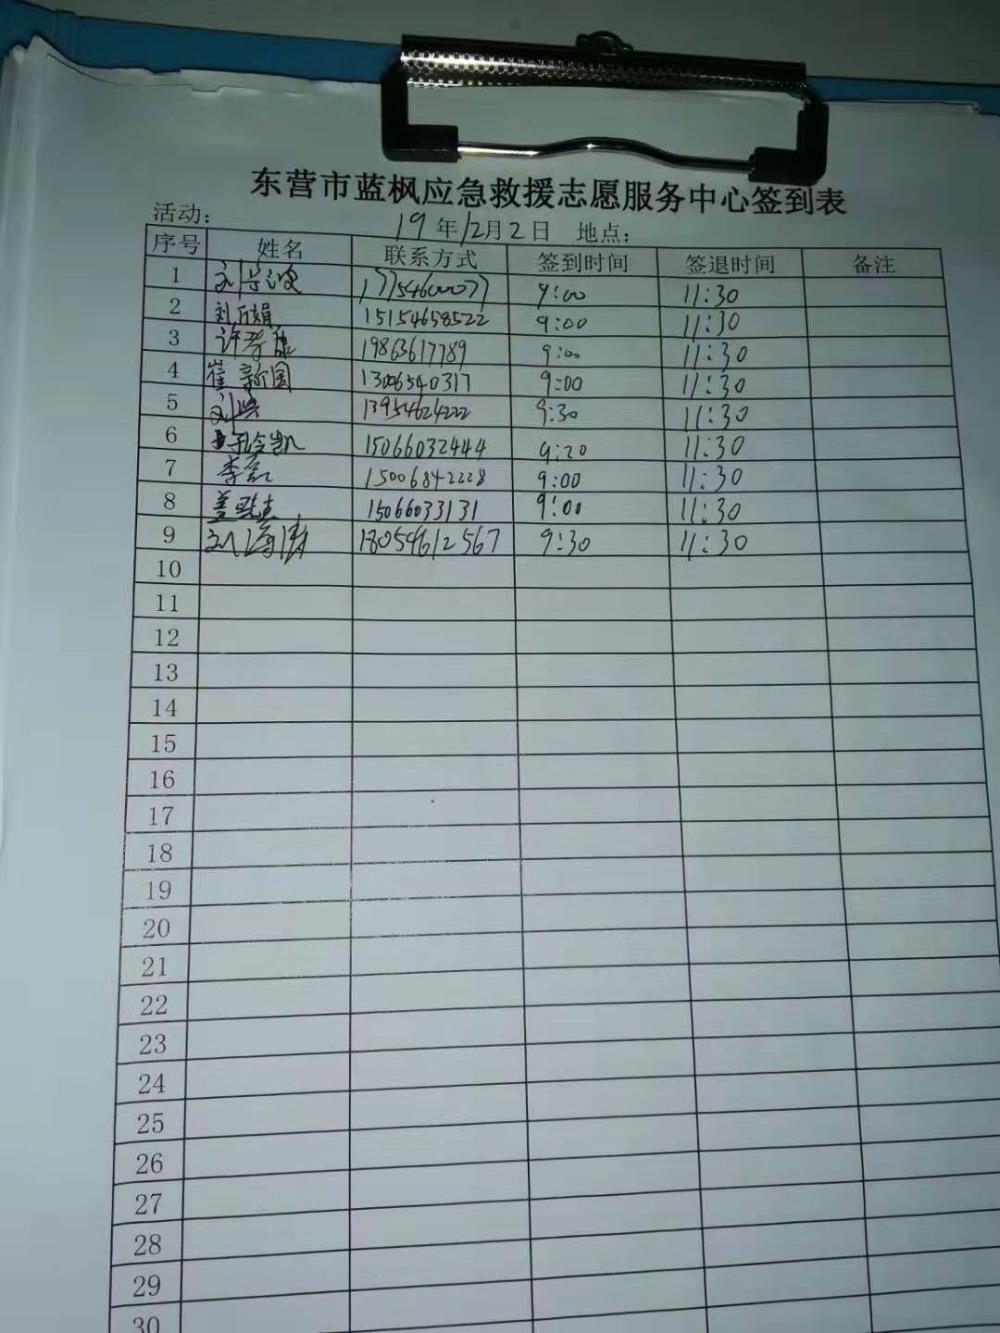 东营市蓝枫应急救援志愿服务中心签到表
活动: 19年12月2日 地点:
序号 姓名 联系方式 签到时间 签退时间 备注
1 17754600077 9:00 11:30
2 15154658522 9:00 11:30
3 19863617789 9:00 11:30
4 崔新国 13006540317 9:00 11:30
5 13954624222 9:30 11:30
6 15066032444 9:20 11:30
7 15006842228 9:00 11:30
8 15066033131 9:00 11:30
9 刘海涛 18054612567 9:30 11:30
10
11
12
13
14
15
16
17
18
19
20
21
22
23
24
25
26
27
28
29
30